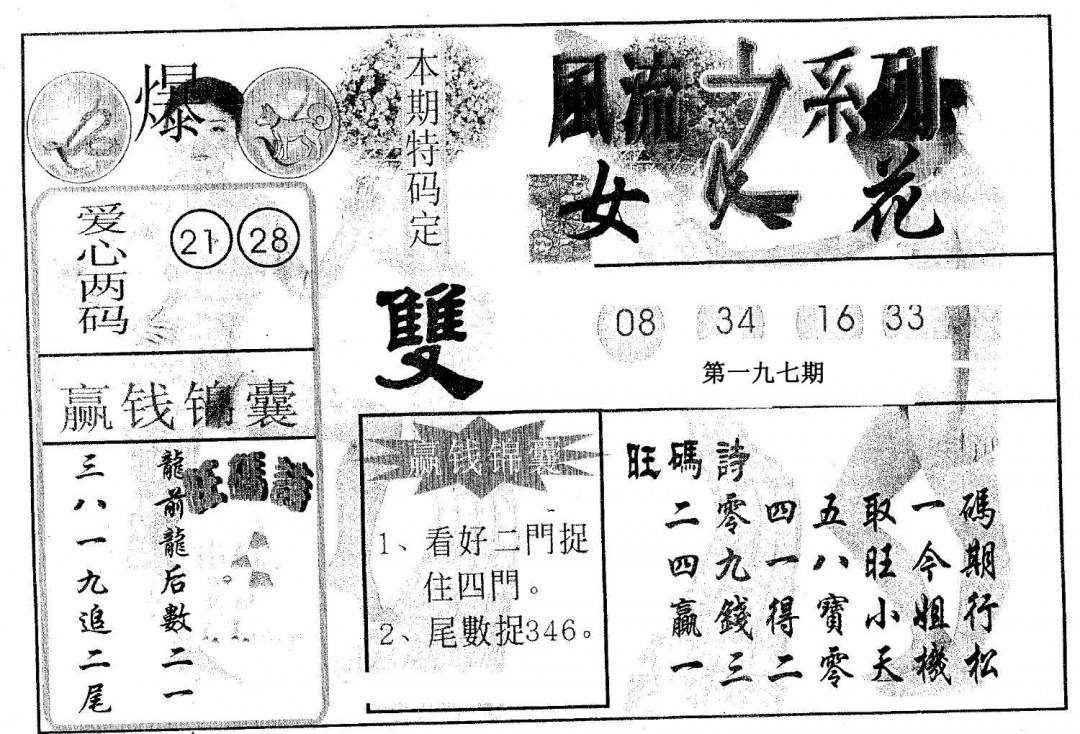 爆
本期特码定
雙
風流之系列
女人花
爱心两码
21 28
08 34 16 33
第一九七期
赢钱锦囊
龍前龍后數二一
三八一九追二尾
旺碼詩
赢钱锦囊
1、看好二門捉
住四門。
2、尾數捉346。
旺碼詩
二零四五取一碼
四九一八旺今期
贏錢得寶小姐行
一三二零天機松